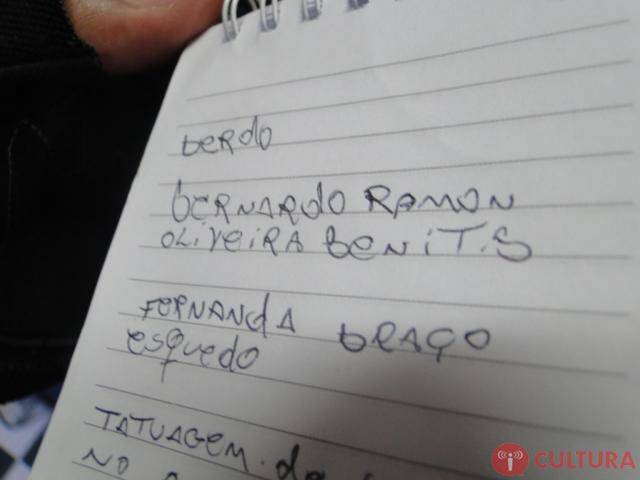 berdo
bERNARdo RAMON
OLiVEiRA BENiT.S
FERNANdA bRAÇO
esquedo
TATUAGEM. do
NO
CULTURA